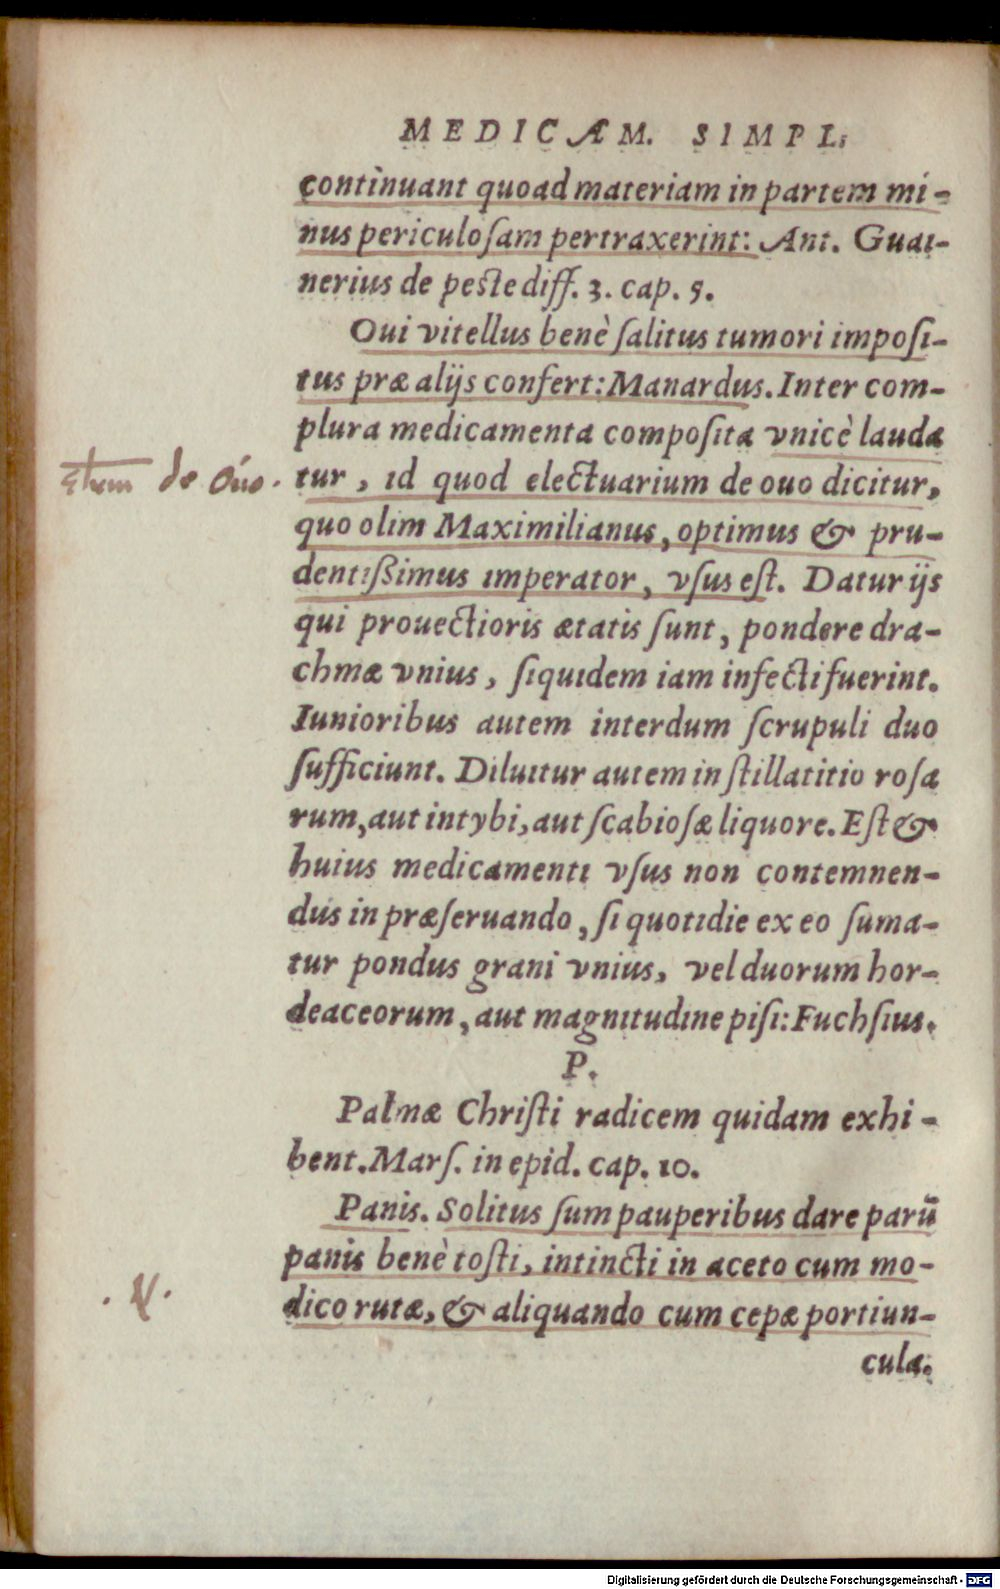 MEDICAM. SIMPL.
continuant quoad materiam in partem mi-
nus periculoſam pertraxerint: Ant. Guai-
nerius de peste diff. 3. cap. 5.
Oui vitellus benè ſalitus tumori impoſi-
tus præ alijs confert: Manardus. Inter com-
plura medicamenta compoſita vnicè lauda
de Ouo.
tur, id quod electuarium de ouo dicitur,
quo olim Maximilianus, optimus & pru-
dentißimus imperator, vſus eſt. Datur ijs
qui prouectioris ætatis ſunt, pondere dra-
chmæ vnius, ſiquidem iam infecti fuerint.
Iunioribus autem interdum ſcrupuli duo
ſufficiunt. Diluitur autem in ſtillatitio roſa
rum, aut intybi, aut ſcabioſæ liquore. Eſt &
huius medicamenti vſus non contemnen-
dus in præſeruando, ſi quotidie ex eo ſuma-
tur pondus grani vnius, vel duorum hor-
deaceorum, aut magnitudine piſi: Fuchſius.
P.
Palmæ Chriſti radicem quidam exhi-
bent. Marſ. in epid. cap. 10.
Panis. Solitus ſum pauperibus dare parū
panis benè toſti, intincti in aceto cum mo-
dico rutæ, & aliquando cum cepæ portiun-
cula.
Digitalisierung gefördert durch die Deutsche Forschungsgemeinschaft - DFG